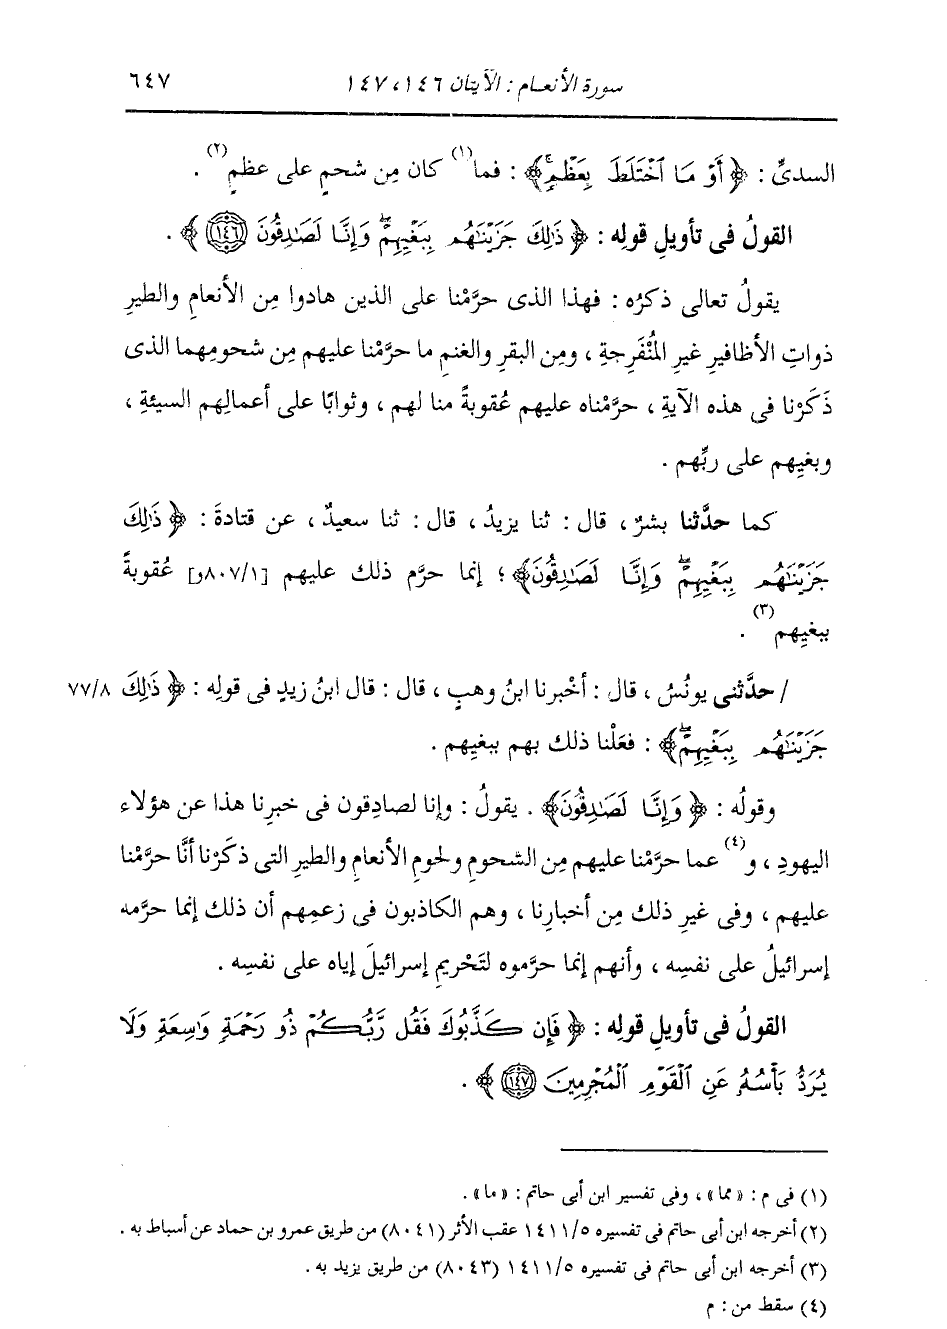 سورة الأنعام : الآيتان ١٤٦، ١٤٧ ٦٤٧
السدىِّ : ﴿ أَوْ مَا ٱخْتَلَطَ بِعَظْمٍۚ﴾ : فما(١) كان مِن شحمٍ على عظمٍ(٢) .
القولُ فى تأويلِ قولِه : ﴿ ذَٰلِكَ جَزَيْنَٰهُم بِبَغْيِهِمْۖ وَإِنَّا لَصَٰدِقُونَ ١٤٦ ﴾ .
يقولُ تعالى ذكرُه : فهذا الذى حرَّمْنا على الذين هادوا مِن الأنعامِ والطيرِ
ذواتِ الأظافيرِ غيرِ المُنْفَرِجةِ ، ومِن البقرِ والغنمِ ما حرَّمْنا عليهم مِن شحومِهما الذى
ذَكَرْنا فى هذه الآيةِ ، حرَّمْناه عليهم عُقوبةً منا لهم ، وثوابًا على أعمالِهم السيئةِ ،
وبغيِهم على ربِّهم .
كما حدَّثنا بشرٌ ، قال : ثنا يزيدُ ، قال : ثنا سعيدٌ ، عن قتادةَ : ﴿ ذَٰلِكَ
جَزَيْنَٰهُم بِبَغْيِهِمْۖ وَإِنَّا لَصَٰدِقُونَ﴾ ؛ إنما حرَّم ذلك عليهم [٨٠٧/١و] عُقوبةً
ببغيِهم(٣) .
/ حدَّثنى يونُسُ ، قال : أخْبرنا ابنُ وهبٍ ، قال : قال ابنُ زيدٍ فى قولِه : ﴿ ذَٰلِكَ ٧٧/٨
جَزَيْنَٰهُم بِبَغْيِهِمْۖ﴾ : فعَلْنا ذلك بهم ببغيِهم .
وقولُه : ﴿ وَإِنَّا لَصَٰدِقُونَ﴾ . يقولُ : وإنا لصادِقون فى خبرِنا هذا عن هؤلاء
اليهودِ ، و(٤) عما حرَّمْنا عليهم مِن الشحومِ ولحومِ الأنعامِ والطيرِ التى ذكَرْنا أنَّا حرَّمْنا
عليهم ، وفى غيرِ ذلك مِن أخبارِنا ، وهم الكاذبون فى زعمِهم أن ذلك إنما حرَّمه
إسرائيلُ على نفسِه ، وأنهم إنما حرَّموه لتَحْريمِ إسرائيلَ إياه على نفسِه .
القولُ فى تأويلِ قولِه : ﴿ فَإِن كَذَّبُوكَ فَقُل رَّبُّكُمْ ذُو رَحْمَةٍ وَٰسِعَةٍ وَلَا
يُرَدُّ بَأْسُهُۥ عَنِ ٱلْقَوْمِ ٱلْمُجْرِمِينَ ١٤٧ ﴾ .
(١) فى م : «مما» ، وفى تفسير ابن أبى حاتم : «ما» .
(٢) أخرجه ابن أبى حاتم فى تفسيره ١٤١١/٥ عقب الأثر (٨٠٤١) من طريق عمرو بن حماد عن أسباط به .
(٣) أخرجه ابن أبى حاتم فى تفسيره ١٤١١/٥ (٨٠٤٣) من طريق يزيد به .
(٤) سقط من : م